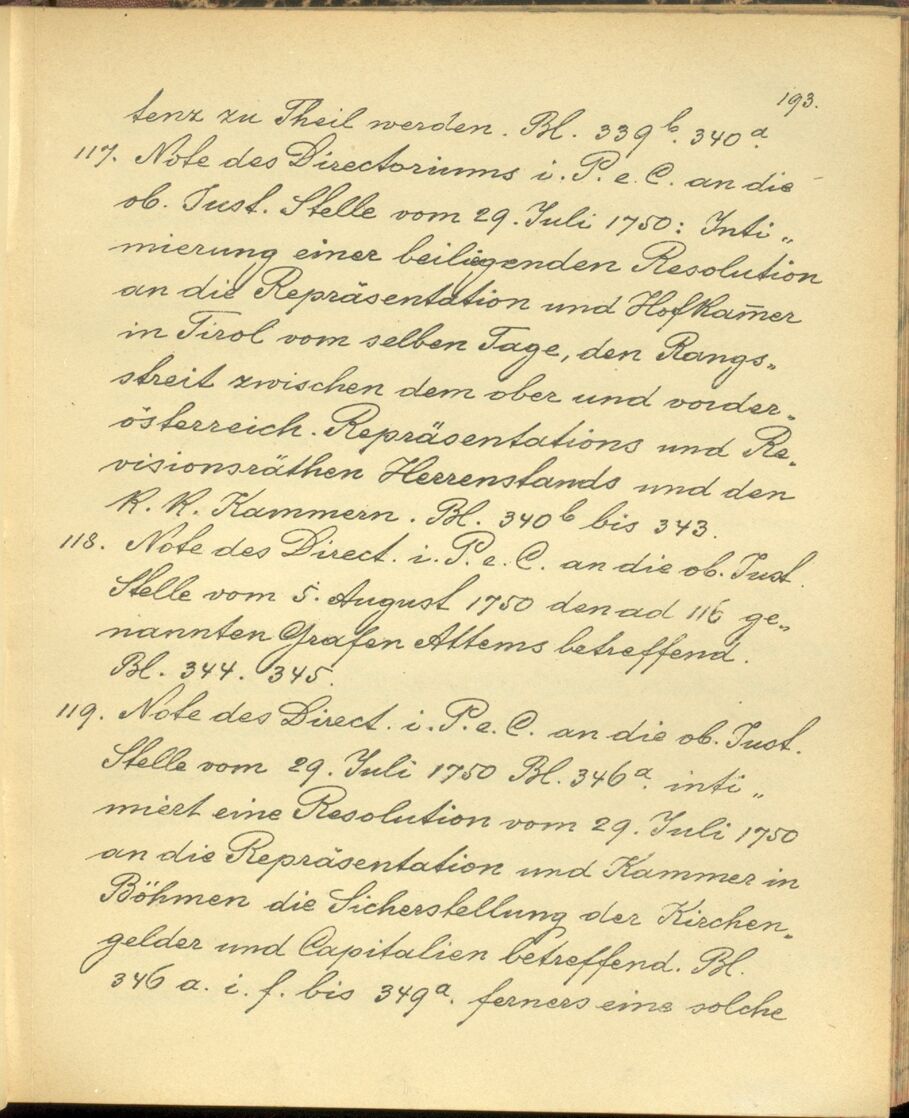 193.
tenz zu Theil werden. Bl. 339b. 340a.
117. Note des Directoriums i. P. e. C. an die
ob. Just. Stelle vom 29. Juli 1750: Inti„
mierung einer beiliegenden Resolution
an die Repräsentation und Hofkam̅er
in Tirol vom selben Tage, den Rangs„
streit zwischen dem ober und vorder„
österreich. Repräsentations und Re„
visionsräthen Herrenstands und den
K. K. Kammern. Bl. 340b bis 343.
118. Note des Direct. i. P. e. C. an die ob. Just.
Stelle vom 5. August 1750 den ad 116 ge„
nannten Grafen Attems betreffend.
Bl. 344. 345.
119. Note des Direct. i. P. e. C. an die ob. Just.
Stelle vom 29. Juli 1750 Bl. 346a. inti„
miert eine Resolution vom 29. Juli 1750
an die Repräsentation und Kammer in
Böhmen die Sicherstellung der Kirchen„
gelder und Capitalien betreffend. Bl.
346 a. i. f. bis 349a. ferners eine solche